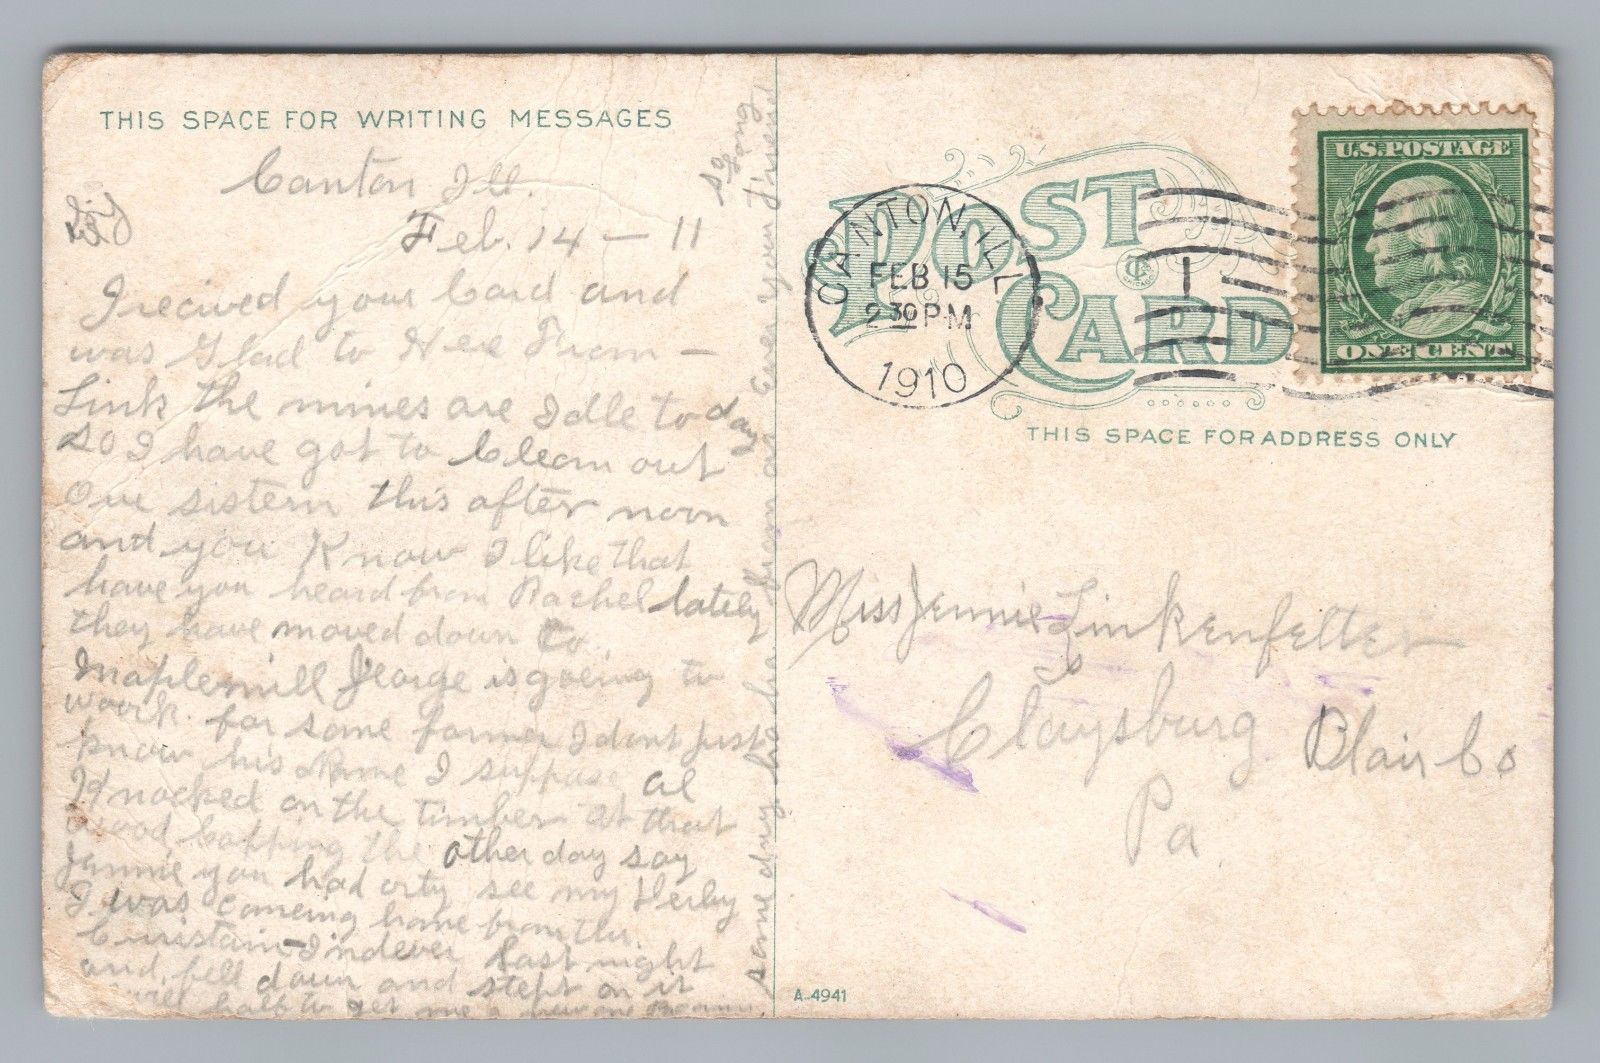 THIS SPACE FOR WRITING MESSAGES
Canton Ill.
Feb. 14 - 11
I recived your Card and
was Glad to Here From -
Link the mines are Idle today
so I have got to Cleam out
Our sistern this after noon
and you Know I like that
have you heard from Rachel lately
they have moved down to
maplemill George is goeing to
work for some farmer I dont just
know his Name I suppose al
Knocked on the timber at that
wood Copping the other day say
Jennie you had orty see my Derby
I was comeing home from the
Christain Indever last night
and fell down and stept on it
will haft to get me a new one
some day
Ever your Friend
POST CARD
CANTON, ILL.
FEB 15
2 30 P.M
1910
1
U.S. POSTAGE
ONE CENT
THIS SPACE FOR ADDRESS ONLY
Miss Jennie Linkenfelter
Claysburg Blair Co
Pa.
A-4941